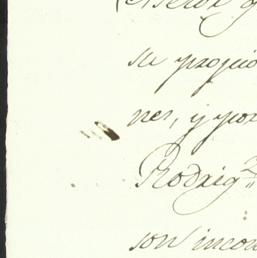 su propio
nes, y por
Rodrig.z
son incon